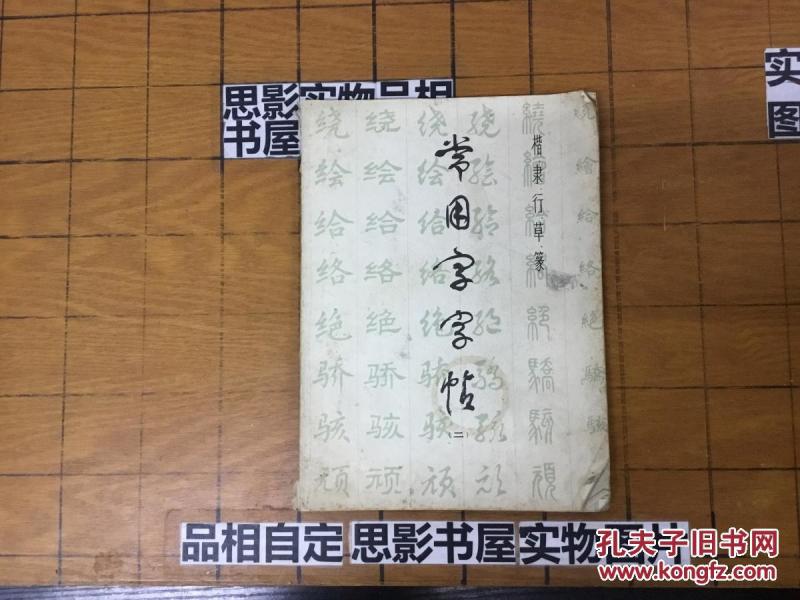 思影实物品相
书屋
实
图
楷隶行草篆
常用字字帖
(二)
绕绘给络绝骄骇顽
绕绘给络绝骄骇顽
绕绘给络绝骄骇顽
繞繪給絡絕驕駭
品相自定
思影书屋
实物图片
孔夫子旧书网
www.kongfz.com